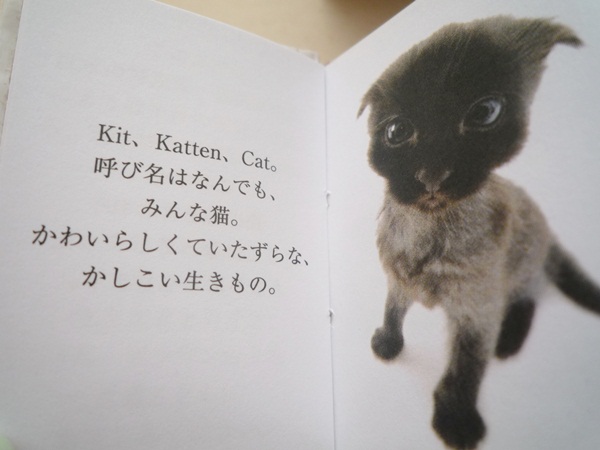 Kit、Katten、Cat。
呼び名はなんでも、
みんな猫。
かわいらしくていたずらな、
かしこい生きもの。